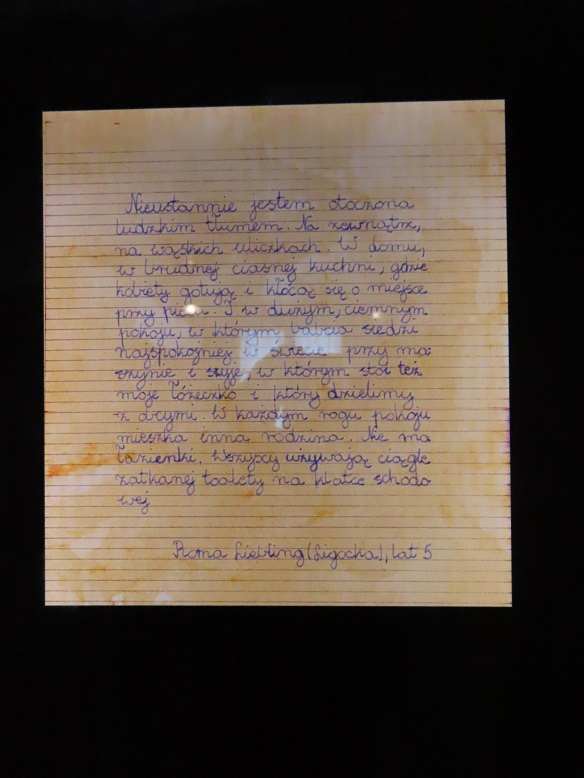 Nieustannie jestem otoczona
ludzkim tłumem. Na zewnątrz,
na wąskich uliczkach. W domu,
w brudnej ciasnej kuchni, gdzie
kobiety gotują i kłócą się o miejsce
przy piecu. I w dużym, ciemnym
pokoju, w którym babcia siedzi
najspokojniej w świecie przy ma-
szynie i szyje, w którym stoi też
moje łóżeczko i który dzielimy
z obcymi. W każdym rogu pokoju
mieszka inna rodzina. Nie ma
łazienki. Wszyscy używają ciągle
zatkanej toalety na klatce schodo-
wej
Roma Liebling (Ligocka), lat 5